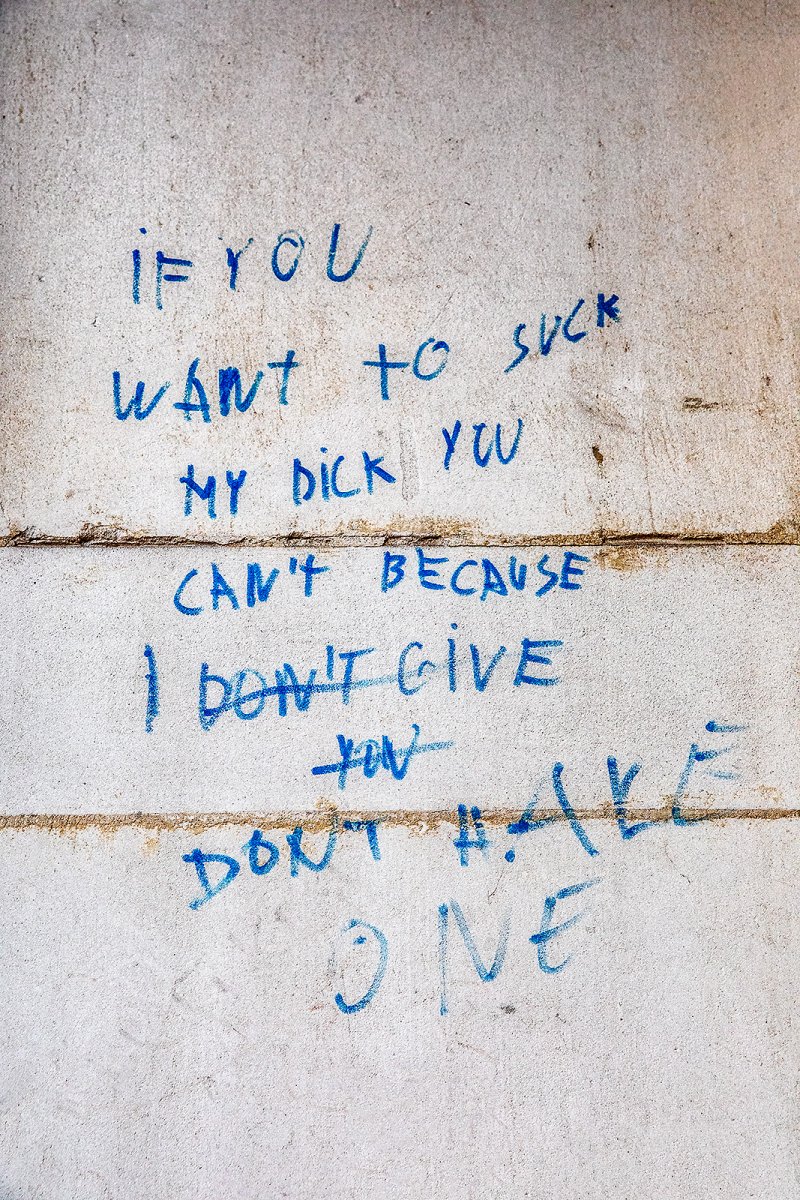 iF YOU
WANT TO SUCK
MY DiCK YOU
CAN'T BECAUSE
I DON'T GiVE
YOU
DON'T HAVE
ONE